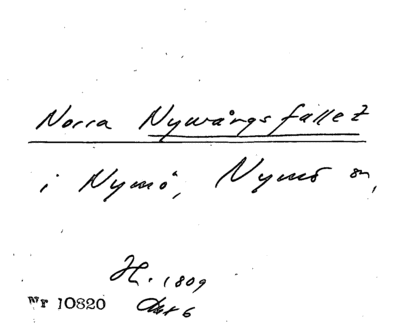 Norra Nywångsfallet
i Nymö, Nymö sn,
H. 1809
Nr 10820 Akt 6